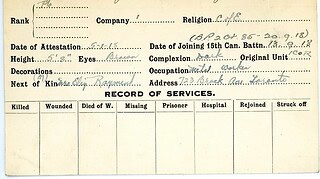 Pte
Rank Company 1 Religion C of E
(B.P.2 Or 25 - 20.9.18)
Date of Attestation 5-1-18 Date of Joining 15th Can. Battn. 13.9.18
Height 5' 5" Eyes Brown Complexion Dark Original Unit 1 C.O.R.
Decorations Occupation Metal Worker
Next of Kin Mrs Raymond Address 723 Brock Ave Toronto
RECORD OF SERVICES.
Killed Wounded Died of W. Missing Prisoner Hospital Rejoined Struck off